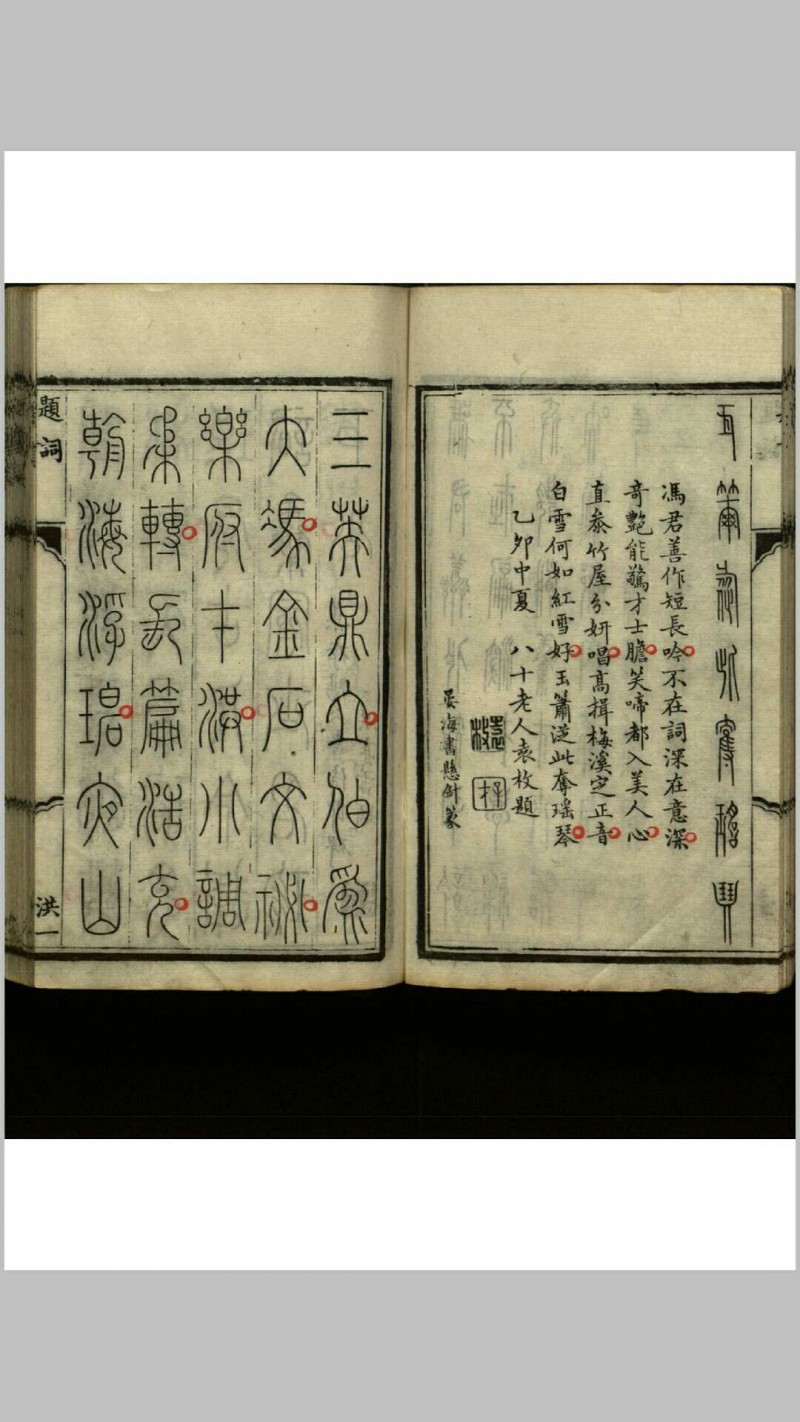 馮君善作短長吟不在詞深在意深
奇艷能驚才士膽笑啼都入美人心
直叅竹屋分妍唱高揖梅溪定正音
白雪何如紅雪好玉簫泛此奪瑤琴
乙卯中夏 八十老人袁枚題
海書懸針篆
三英鼎立伯爲
大馮金石文
樂府才洪小調
柔轉長篇浩充
朝海浮碧夜山
題詞
洪一